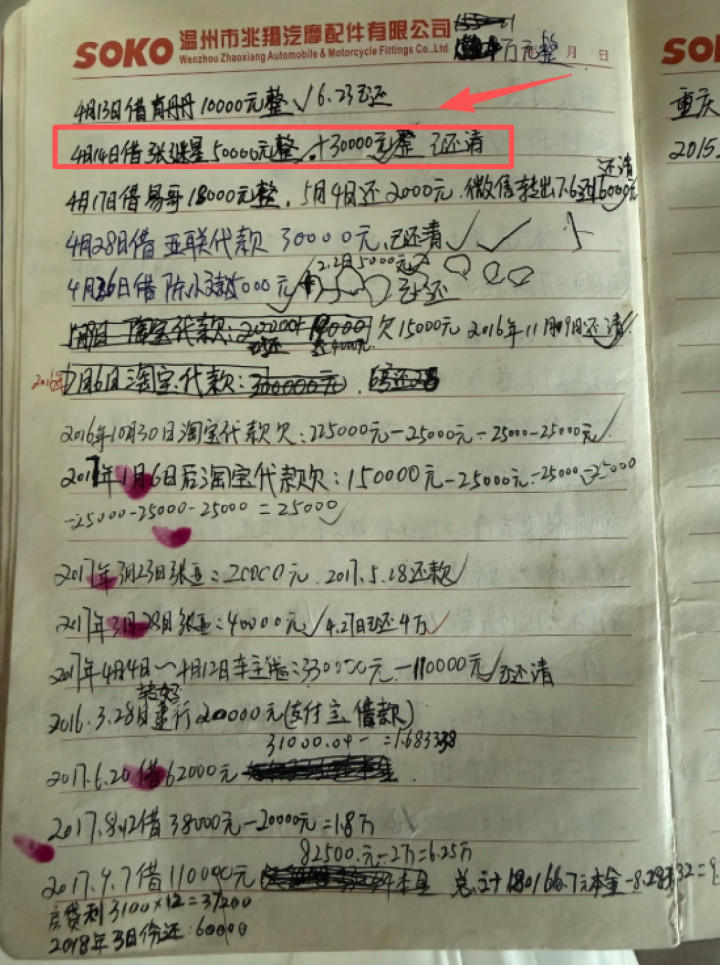 SOKO 温州市兆翔汽摩配件有限公司
Wenzhou Zhaoxiang Automobile & Motorcycle Fittings Co.,Ltd
万元整 月 日
4月13日借肖丹丹10000元整√6.23已还
4月14日借张继星50000元整√+30000元整 已还清
4月17日借易哥18000元整,5月4日还2000元.微信转出7.6还16000元 还清
4月28日借亚联代款30000元.已还清√√
2.2日5000元
4月26日借陈小 5000元√ 已还
淘宝代款: 欠15000元2016年11月09日还清√
2016年7月6日淘宝代款:300000元
2016年10月30日淘宝代款欠:225000元-25000元-25000-25000元√
2017年1月6日后淘宝代款欠:150000元-25000元-25000-25000
-25000-25000-25000=25000√
2017年3月23日张亚:20000元.2017.5.28还款√
2017年3月28日张亚:40000元√4.27日已还4万√
2017年4月4日~4月12日车主 :330000元-110000元√已还清
2016.3.28日建行20000元(支付宝借款)
31000.04-=1.683338
2017.6.20借62000元
2017.8.12借38000元-20000元=1.8万
82500.元-2万=6.25万
2017.9.7借110000元 总计180166.7元本金-8.28
房贷利3100×12=37200
2018年3月份还:60000
SO
重庆
2015.